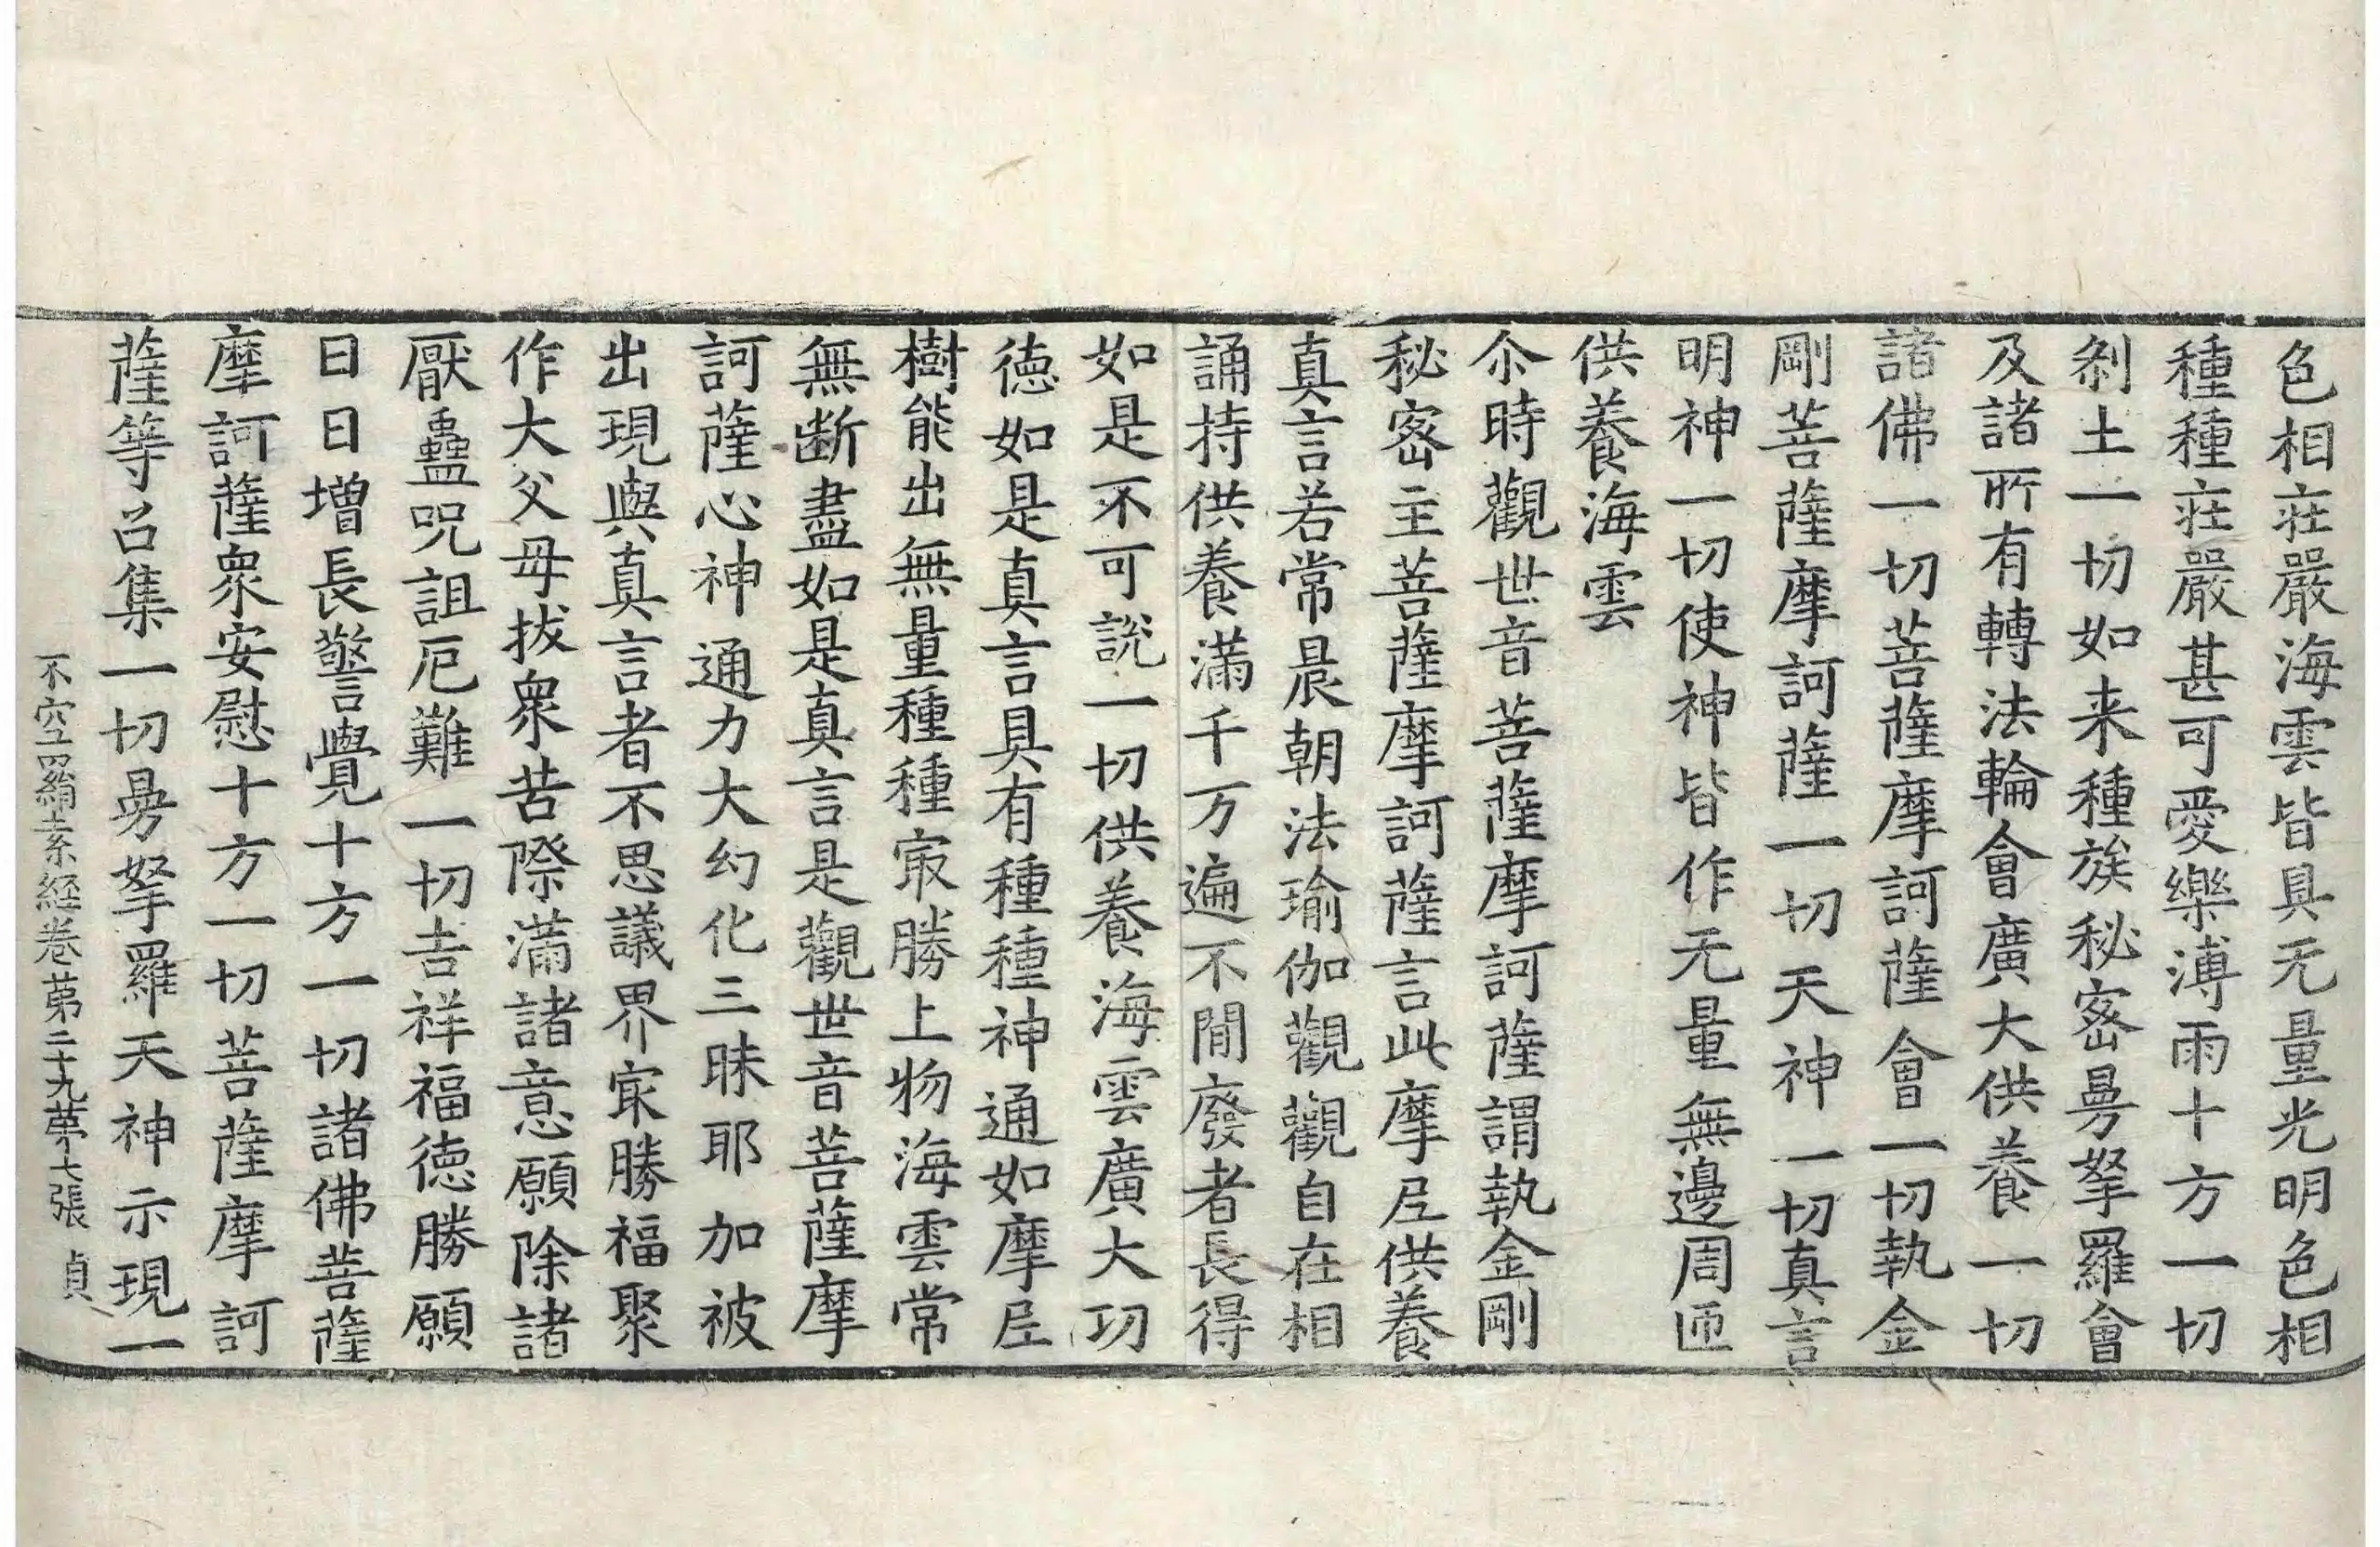 色相荘嚴海雲皆具无量光明色相
種種荘嚴甚可愛樂溥雨十方一切
刹土一切如来種族秘密曼拏羅會
及諸所有轉法輪會廣大供養一切
諸佛一切菩薩摩訶薩會一切執金
剛菩薩摩訶薩一切天神一切真言
明神一切使神皆作无量無邊周匝
供養海雲
尒時觀世音菩薩摩訶薩謂執金剛
秘密主菩薩摩訶薩言此摩𡰱供養
真言若常晨朝法瑜伽觀觀自在相
誦持供養滿千万遍不閒廢者長得
如是不可說一切供養海雲廣大功
徳如是真言具有種種神通如摩𡰱
樹能出無量種種㝡勝上物海雲常
無断盡如是真言是觀世音菩薩摩
訶薩心神通力大幻化三昧耶加被
出現與真言者不思議界㝡勝福聚
作大父母拔衆苦際滿諸意願除諸
厭蠱呪詛厄難一切吉祥福徳勝願
日日增長警覺十方一切諸佛菩薩
摩訶薩衆安慰十方一切菩薩摩訶
薩等召集一切曼拏羅天神示現一
不空罥索経卷苐二十九苐十七張 貞